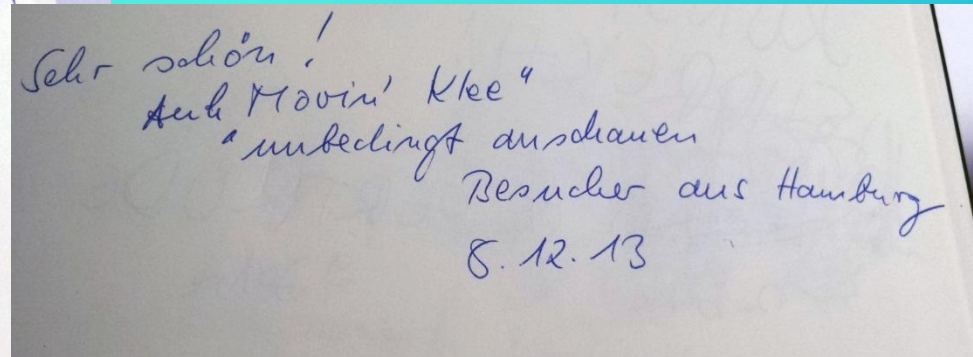 Sehr schön!
Auch Movin' Klee"
"unbedingt anschauen
Besucher aus Hamburg
8.12.13